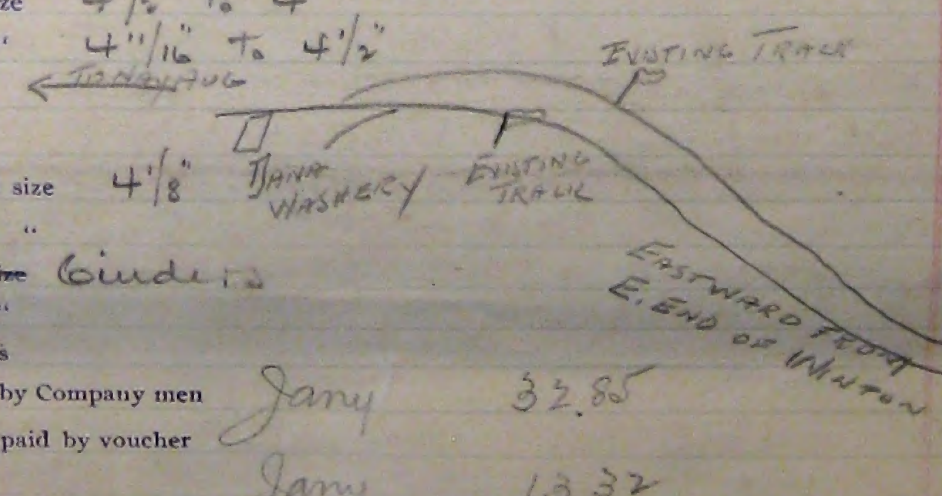 ze 4 1/2" to 4
" 4 11/16" To 4 1/2"
EXISTING TRACK
TO NAY AUG
size 4 1/8"
DANA
WASHERY
EXISTING
TRACK
"
ze Cinders
EASTWARD FROM
E. END OF WINTON
"
s
by Company men Jany 32.85
paid by voucher
Jany 13.32